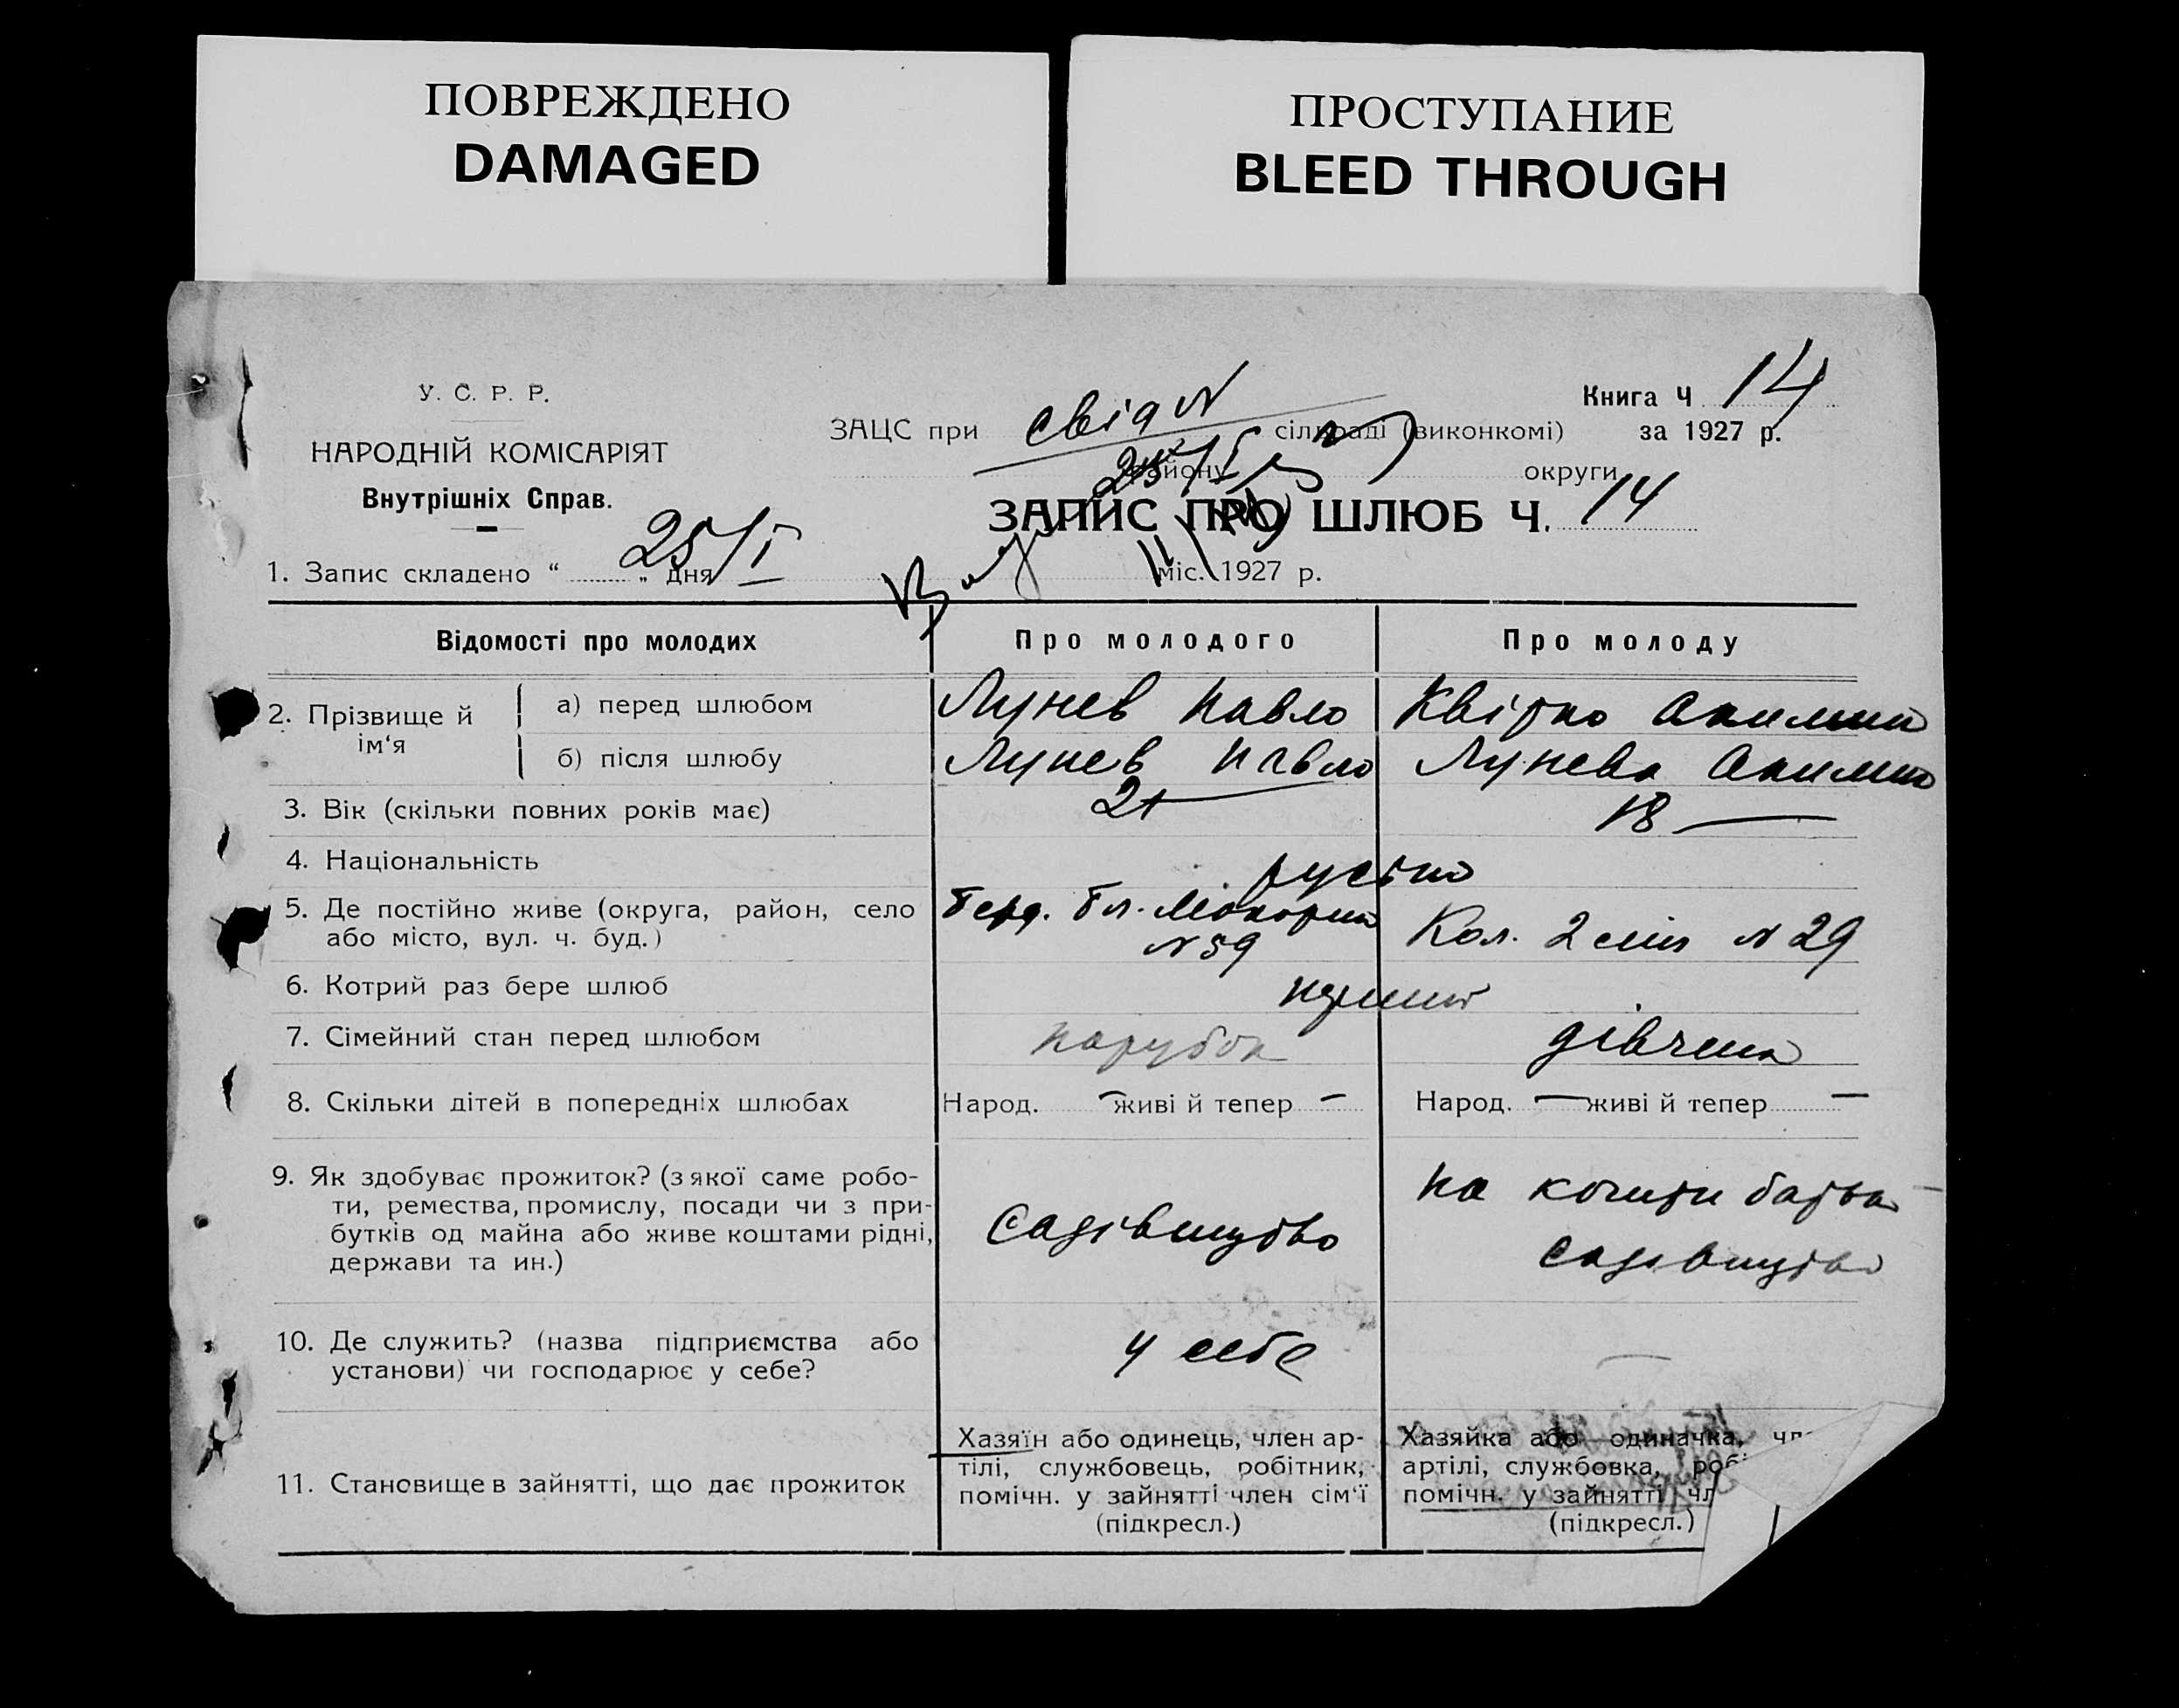 ПОВРЕЖДЕНО
DAMAGED
ПРОСТУПАНИЕ
BLEED THROUGH
У. С. Р. Р.
НАРОДНІЙ КОМІСАРІЯТ
Внутрішніх Справ.
Книга Ч 14
ЗАЦС при сільраді (виконкомі) за 1927 р.
району округи
ЗАПИС ПРО ШЛЮБ Ч. 14
1. Запис складено “ 25/I „ дня міс. 1927 р.
Відомості про молодих Про молодого Про молоду
2. Прізвище й ім‘я
а) перед шлюбом Лунев Павло Квітко
б) після шлюбу Лунев Павло Лунева
3. Вік (скільки повних років має) 21 18
4. Національність
5. Де постійно живе (округа, район, село
або місто, вул. ч. буд.) N 59 Кол. 2 N 29
6. Котрий раз бере шлюб
7. Сімейний стан перед шлюбом парубок дівчина
8. Скільки дітей в попередніх шлюбах Народ. — живі й тепер — Народ. — живі й тепер —
9. Як здобуває прожиток? (з якої саме робо-
ти, ремества, промислу, посади чи з при-
бутків од майна або живе коштами рідні,
держави та ин.)
Садівництво
на кошти батька
садівництво
10. Де служить? (назва підприємства або
установи) чи господарює у себе?
у себе —
11. Становище в зайнятті, що дає прожиток
Хазяїн або одинець, член ар-
тілі, службовець, робітник,
помічн. у зайнятті член сім‘ї
(підкресл.)
Хазяйка або одиначка,
артілі, службовка,
помічн. у зайнятті
(підкресл.)